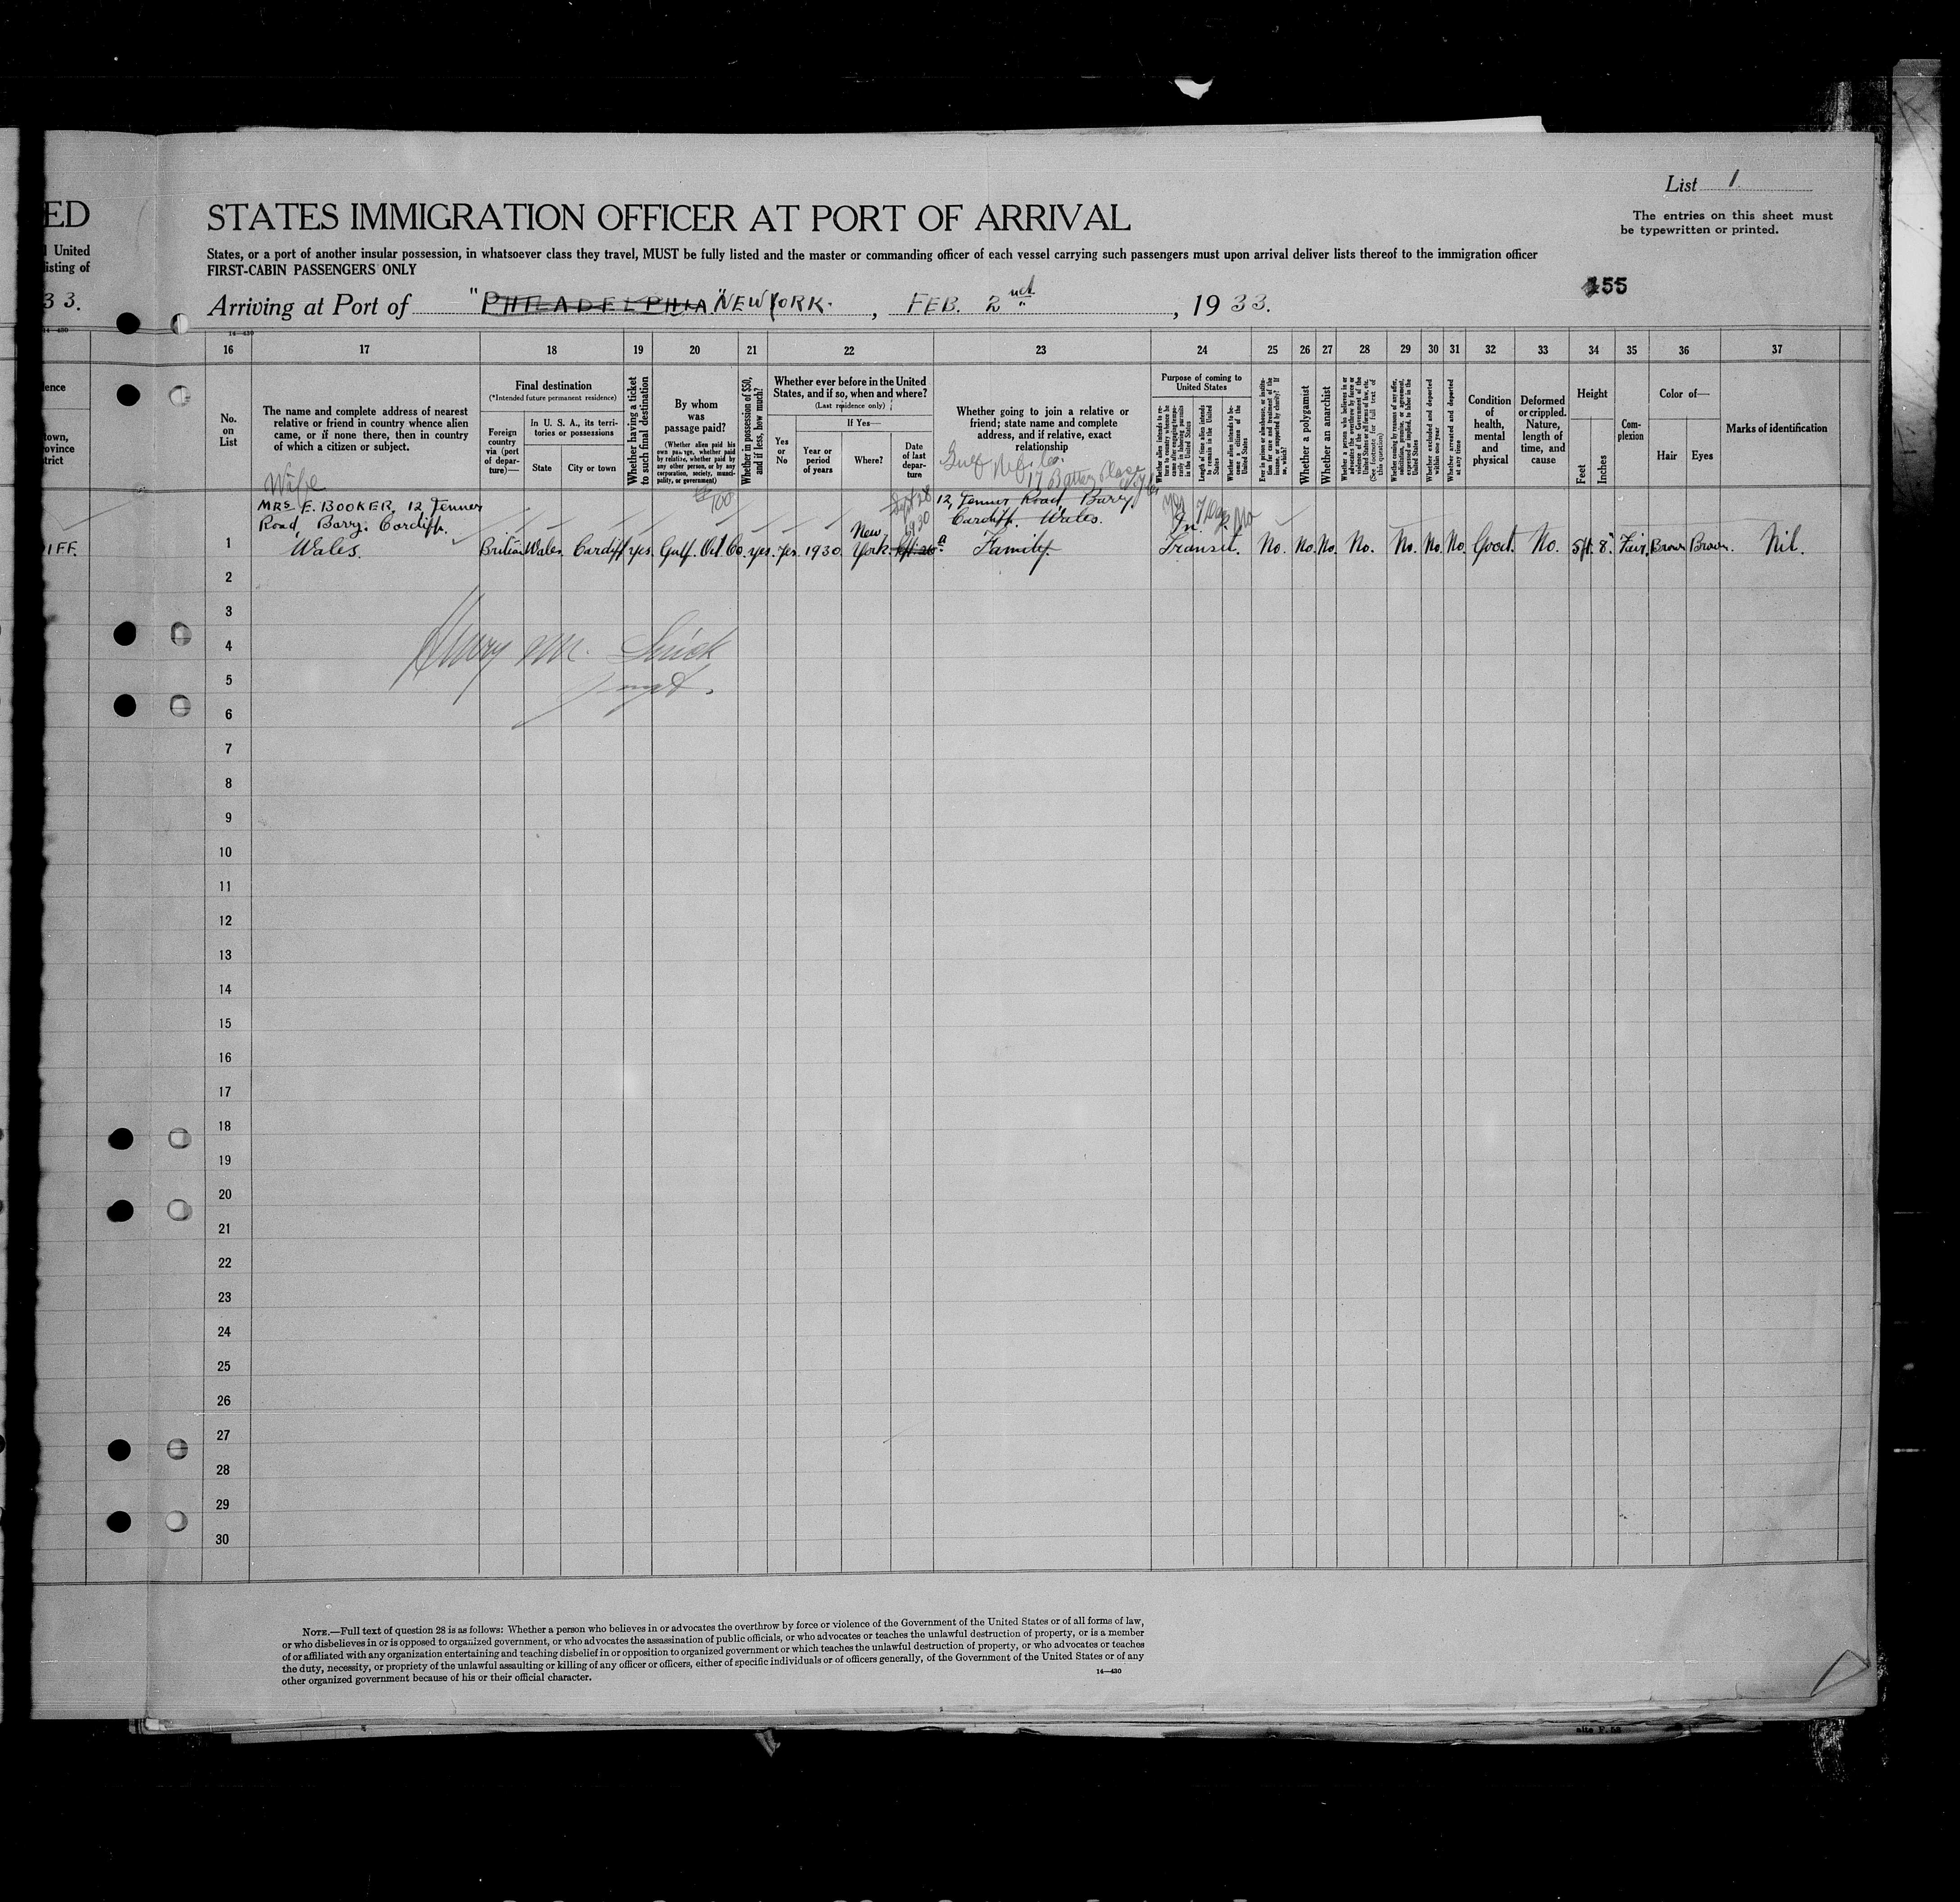 List 1
ED
STATES IMMIGRATION OFFICER AT PORT OF ARRIVAL
The entries on this sheet must
be typewritten or printed.
United
States, or a port of another insular possession, in whatsoever class they travel, MUST be fully listed and the master or commanding officer of each vessel carrying such passengers must upon arrival deliver lists thereof to the immigration officer
listing of
FIRST-CABIN PASSENGERS ONLY
155
33.
Arriving at Port of "PHILADELPHIA" NEW YORK. , FEB. 2nd , 1933.
14—430
16 17 18 19 20 21 22 23 24 25 26 27 28 29 30 31 32 33 34 35 36 37
No.
on
List
The name and complete address of nearest
relative or friend in country whence alien
came, or if none there, then in country
of which a citizen or subject.
Final destination
(*Intended future permanent residence)
Foreign
country
via (port
of depar-
ture)—
In U. S. A., its terri-
tories or possessions
State
City or town
Whether having a ticket
to such final destination
By whom
was
passage paid?
(Whether alien paid his
own passage, whether paid
by relative, whether paid by
any other person, or by any
corporation, society, munici-
pality, or government)
Whether in possession of $50,
and if less, how much?
Whether ever before in the United
States, and if so, when and where?
(Last residence only)
If Yes—
Yes
or
No
Year or
period
of years
Where?
Date
of last
depar-
ture
Whether going to join a relative or
friend; state name and complete
address, and if relative, exact
relationship
Purpose of coming to
United States
Whether alien intends to re-
turn to country whence he
came after engaging tempo-
rarily in laboring pursuits
in the United States
Length of time alien intends
to remain in the United
States
Whether alien intends to be-
come a citizen of the
United States
Ever in prison or almshouse, or institu-
tion for care and treatment of the
insane, or supported by charity? If
so, which?
Whether a polygamist
Whether an anarchist
Whether a person who believes in or
advocates the overthrow by force or
violence of the Government of the
United States or all forms of law, etc.
(See footnote for full text of
this question)
Whether coming by reasons of any offer,
solicitation, promise, or agreement,
expressed or implied, to labor in the
United States
Whether excluded and deported
within one year
Whether arrested and deported
at any time
Condition
of
health,
mental
and
physical
Deformed
or crippled.
Nature,
length of
time, and
cause
Height
Feet
Inches
Com-
plexion
Color of—
Hair
Eyes
Marks of identification
Wife
17 Battery Place
MRS E. BOOKER, 12, Fenner
Road, Bary. Cardiff.
Wales.
100
Sept 28
1930
12, Fenner Road, Bary,
Cardiff. Wales.
Family
IFF.
1 Britian Wales. Cardiff yes. Gulf. Oil. Co. yes. yes. 1930. New York. In Transit. No. No. No. No. No. No. No. Good. No. 5ft. 8" Fair. Brown Brown. Nil.
2
3
4
5
6
7
8
9
10
11
12
13
14
15
16
17
18
19
20
21
22
23
24
25
26
27
28
29
30
NOTE.—Full text of question 28 is as follows: Whether a person who believes in or advocates the overthrow by force or violence of the Government of the United States or of all forms of law,
or who disbelieves in or is opposed to organized government, or who advocates the assassination of public officials, or who advocates or teaches the unlawful destruction of property, or is a member
of or affiliated with any organization entertaining and teaching disbelief in or opposition to organized government or which teaches the unlawful destruction of property, or who advocates or teaches
the duty, necessity, or propriety of the unlawful assaulting or killing of any officer or officers, either of specific individuals or of officers generally, of the Government of the United States or of any
other organized government because of his or their official character.
14—430